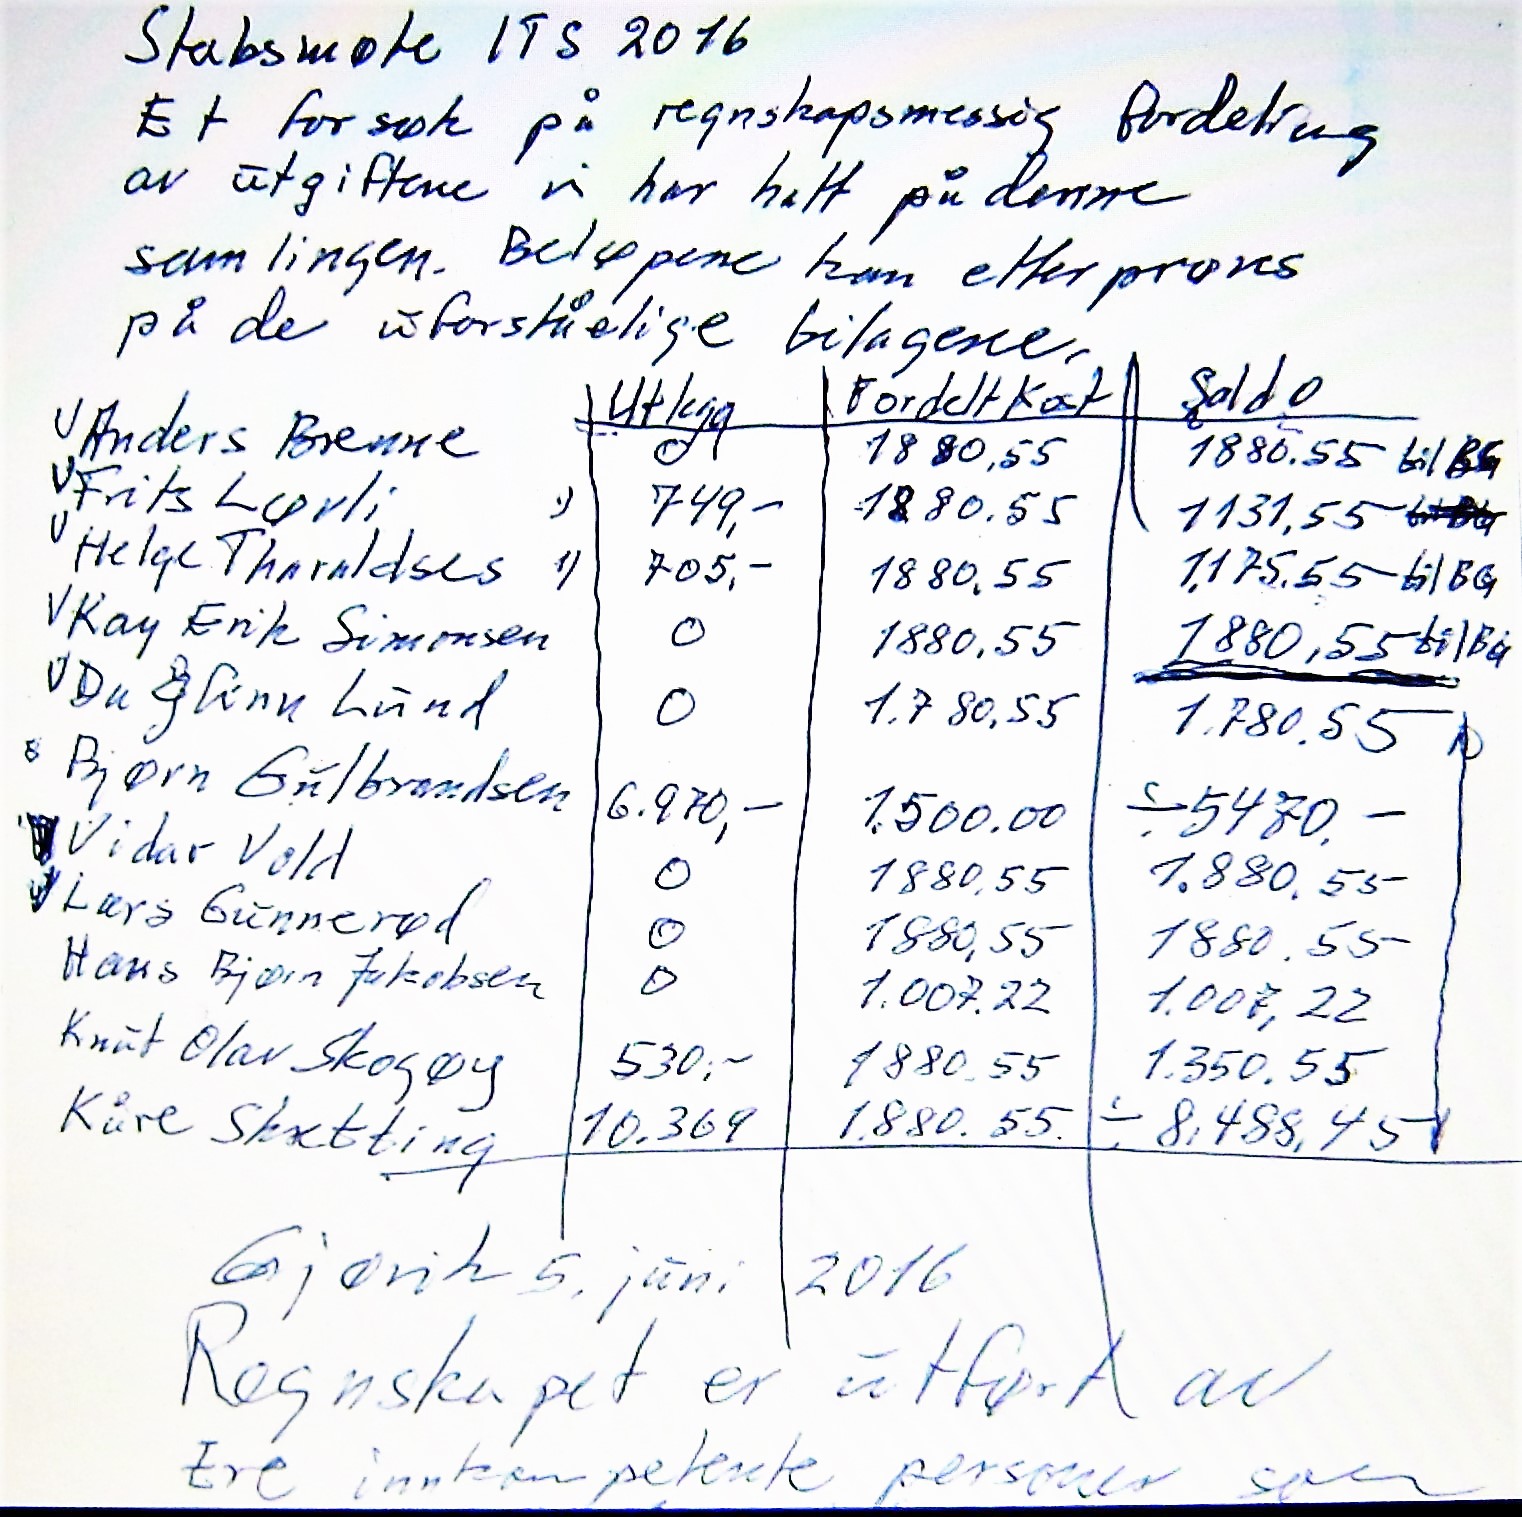 Stabsmøte ITS 2016
Et forsøk på regnskapsmessig fordeling
av utgiftene vi har hatt på denne
samlingen. Beløpene kan etterprøves
på de uforståelige bilagene.
Utlegg Fordelt Kost Saldo
V Anders Brenne 0 1880,55 1880.55 til BG
V Frits Løvli 1) 749,- 1880.55 1131,55
V Helge Tharaldses 1) 705,- 1880.55 1.175.55 til BG
V Kay Erik Simonsen 0 1880,55 1880,55 til BG
V Dag Glenn Lund 0 1.780,55 1.780.55
Bjørn Gulbrandsen 6.970,- 1.500.00 ÷ 5470,-
Vidar Vold 0 1880,55 1.880.55
Lars Gunnerød 0 1880,55 1880.55
Hans Bjørn Jakobsen 0 1.007.22 1.007,22
Knut Olav Skogøy 530,- 1880.55 1.350.55
Kåre Skretting 10.369 1.880.55 ÷ 8.488,45
Gjøvik 5. juni 2016
Regnskapet er utført av
Ere innkompetente personer som